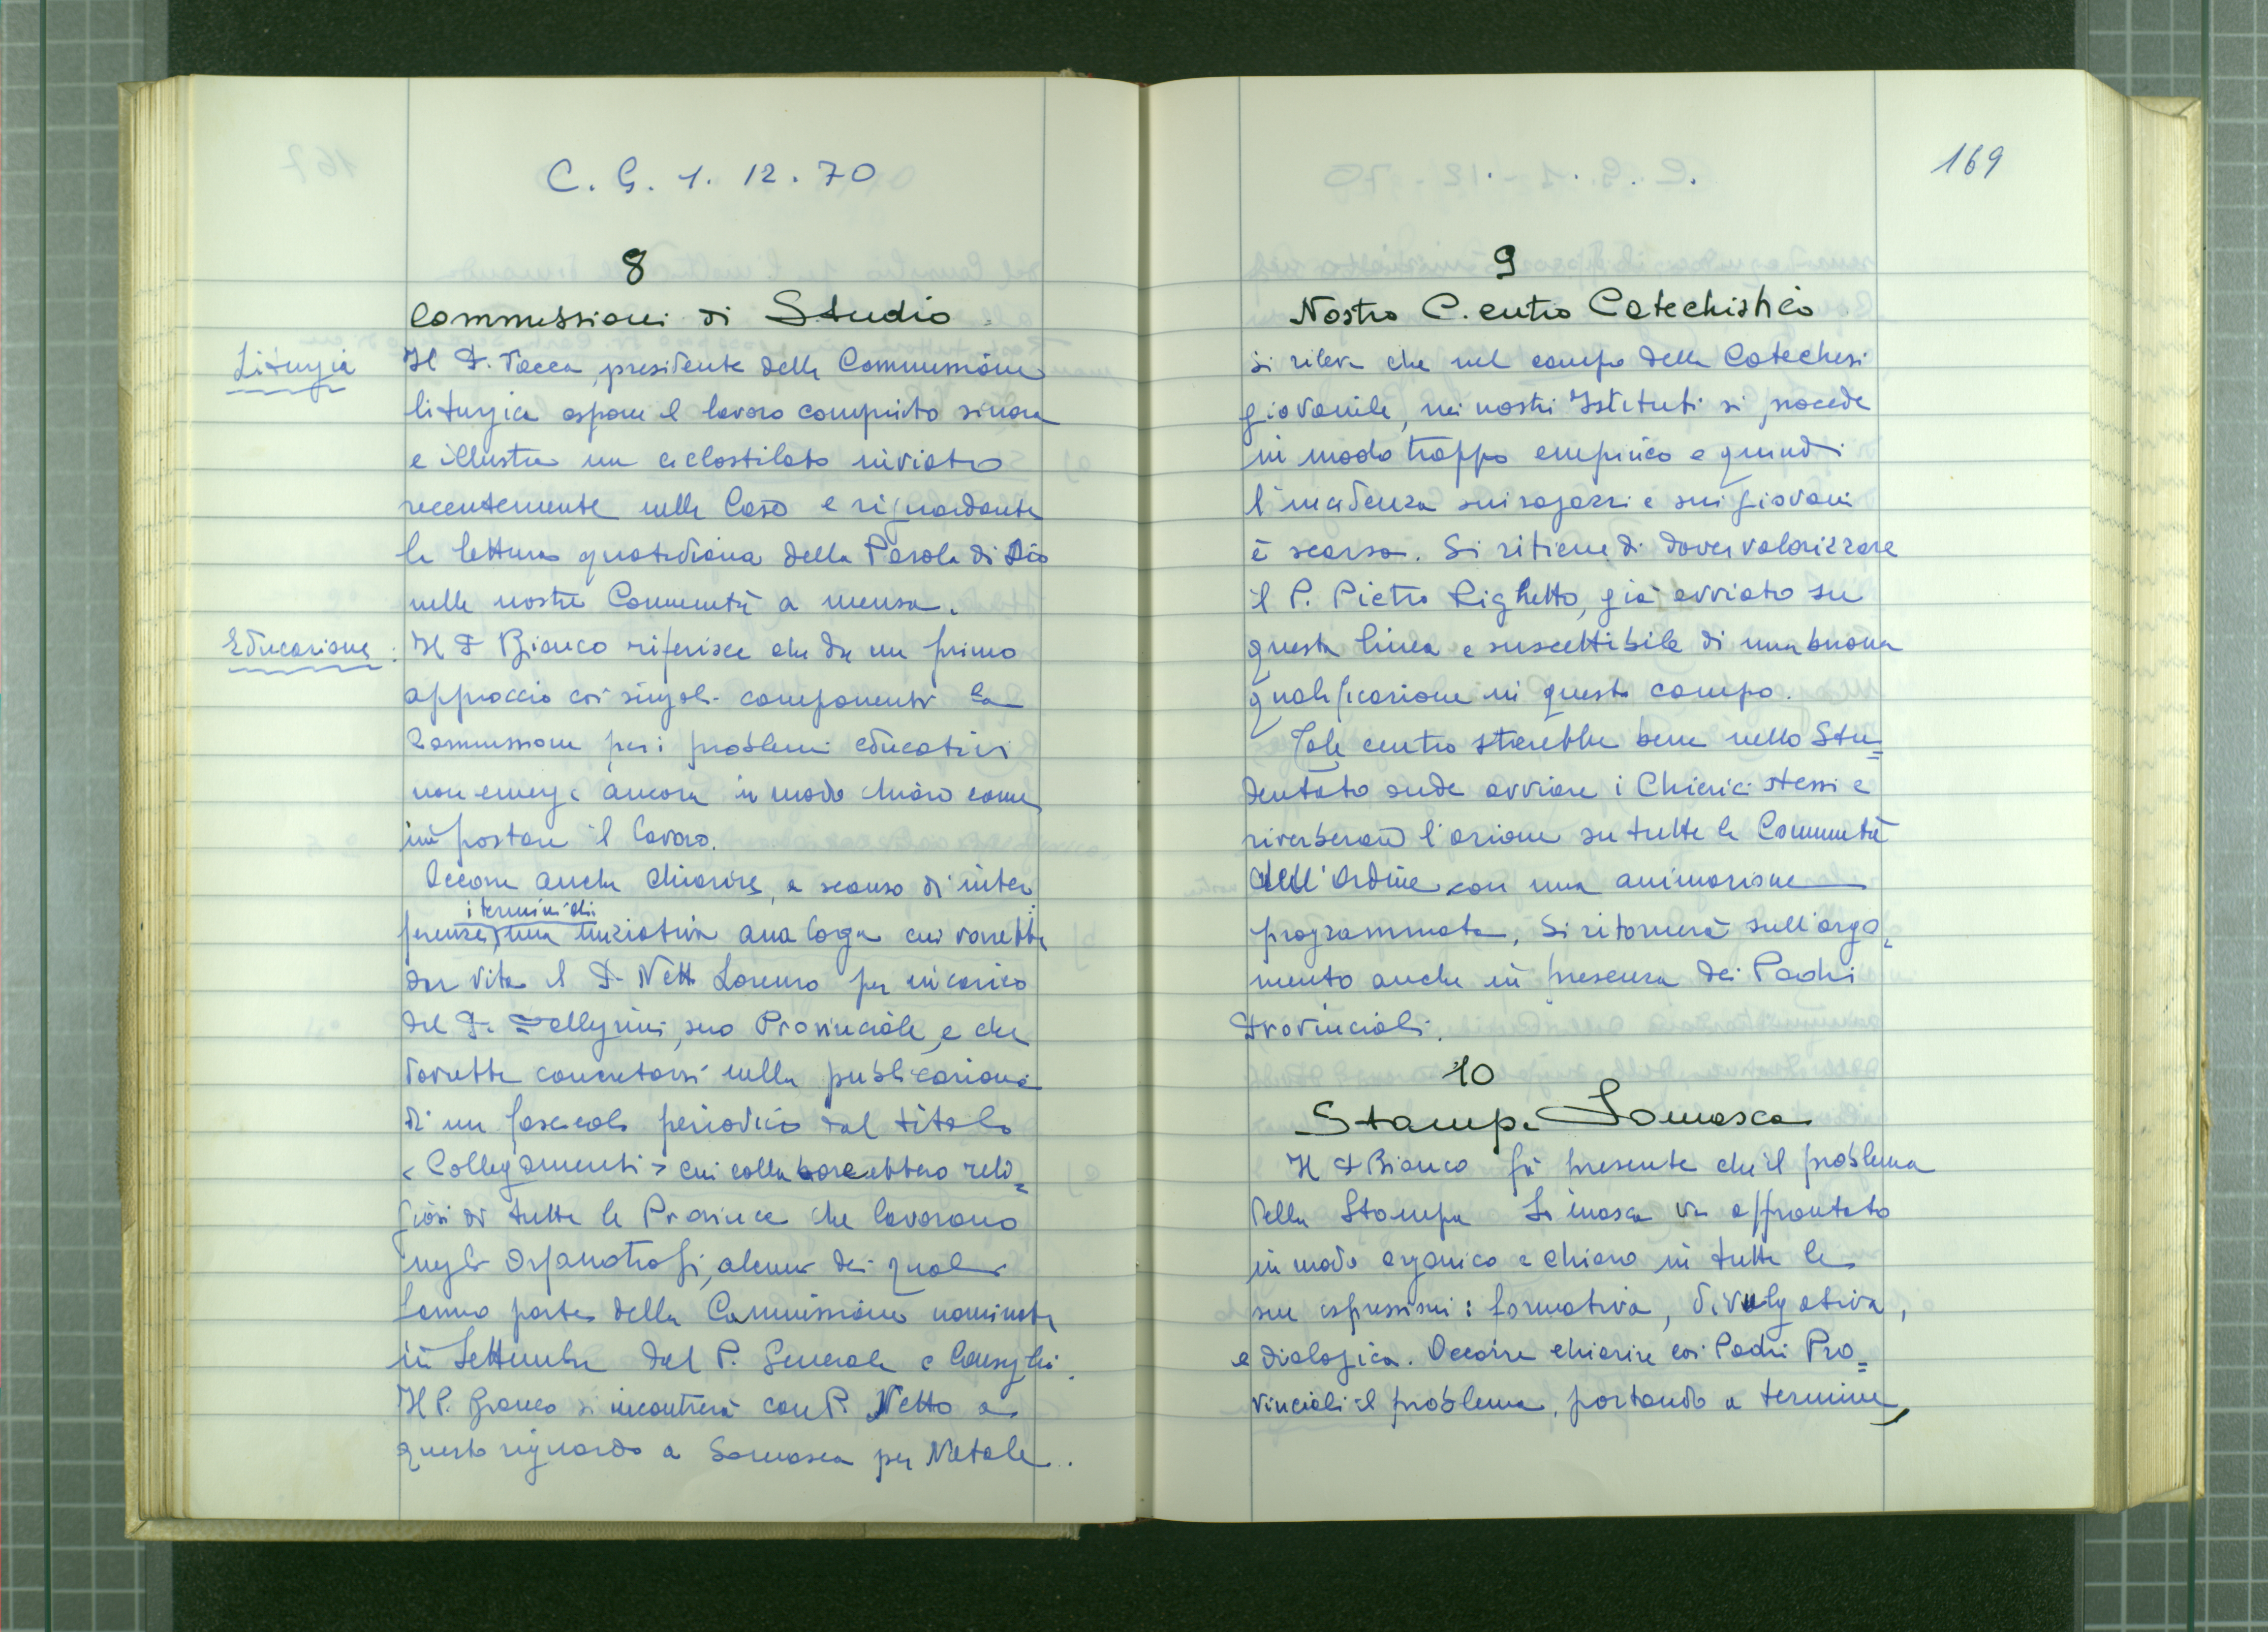 C. G. 1. 12. 70
8
Commissioni di Studio
Liturgia
Il P. Vacca, presidente della Commissione
liturgica espone il lavoro compiuto sinora
e illustra un ciclostilato inviato
recentemente nelle Case e riguardante
la lettura quotidiana della Parola di Dio
nelle nostre Comunità a mensa.
Educazione:
Il P. Bianco riferisce che da un primo
approccio coi singoli componenti la
Commissione per i problemi educativi
non emerge ancora in modo chiaro come
impostare il lavoro.
Occorre anche chiarire, a scanso di inter
i termini di
ferenze, una iniziativa analoga cui vorrebbe
dar vita il P. Netto Lorenzo per incarico
del P. Pellegrini, suo Provinciale, e che
dovrebbe concretarsi nella pubblicazione
di un fascicolo periodico dal titolo
<Collegamenti> cui collaborerebbero reli=
giosi di tutte le Province che lavorano
negli Orfanotrofi, alcuni dei quali
fanno parte della Commissione nominata
in Settembre dal P. Generale e Consiglio.
Il P. Bianco si incontrerà con P. Netto a
questo riguardo a Somasca per Natale.
169
9
Nostro C.entro Catechistico
Si rileva che nel campo della Catechesi
giovanile, nei nostri Istituti si procede
in modo troppo empirico e quindi
l'incidenza sui ragazzi e sui giovani
è scarsa. Si ritiene di dover valorizzare
il P. Pietro Righetto, già avviato su
questa linea e suscettibile di una buona
qualificazione in questo campo.
Tale centro starebbe bene nello Stu=
dentato onde avviare i Chierici stessi e
riverberare l'azione su tutte le Comunità
dell'Ordine con una animazione
programmata. Si ritornerà sull'argo=
mento anche in presenza dei Padri
Provinciali.
10
Stampa Somasca
Il P. Bianco fa presente che il problema
della Stampa Somasca va affrontato
in modo organico e chiaro in tutte le
sue espressioni: formativa, divulgativa,
e dialogica. Occorre chiarire coi Padri Pro=
vinciali il problema, portando a termine,